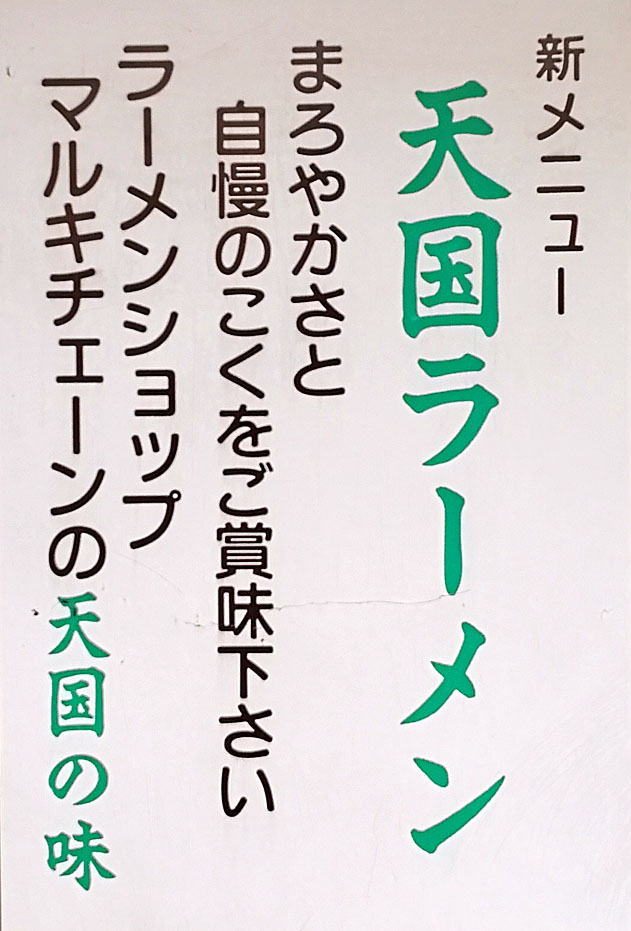 新メニュー
天国ラーメン
まろやかさと
自慢のこくをご賞味下さい
ラーメンショップ
マルキチェーンの天国の味